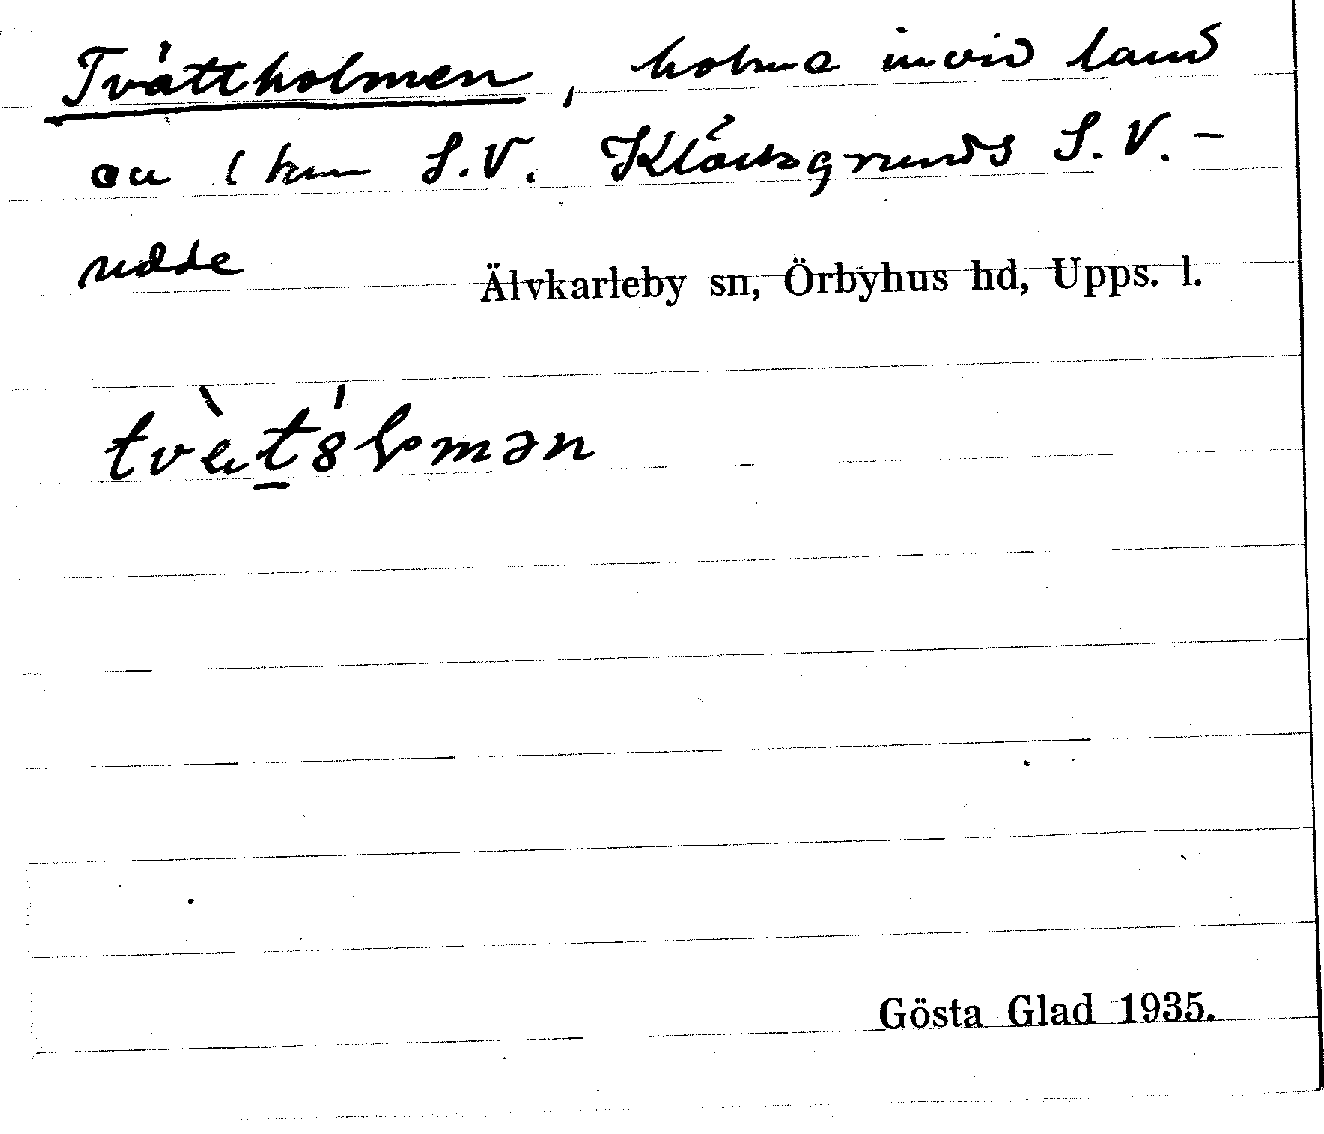 Tvättholmen, holme invid land
ca 1 km S.V. Klåcksgrunds S.V.-
udde
Älvkarleby sn, Örbyhus hd, Upps. l.
Gösta Glad 1935.